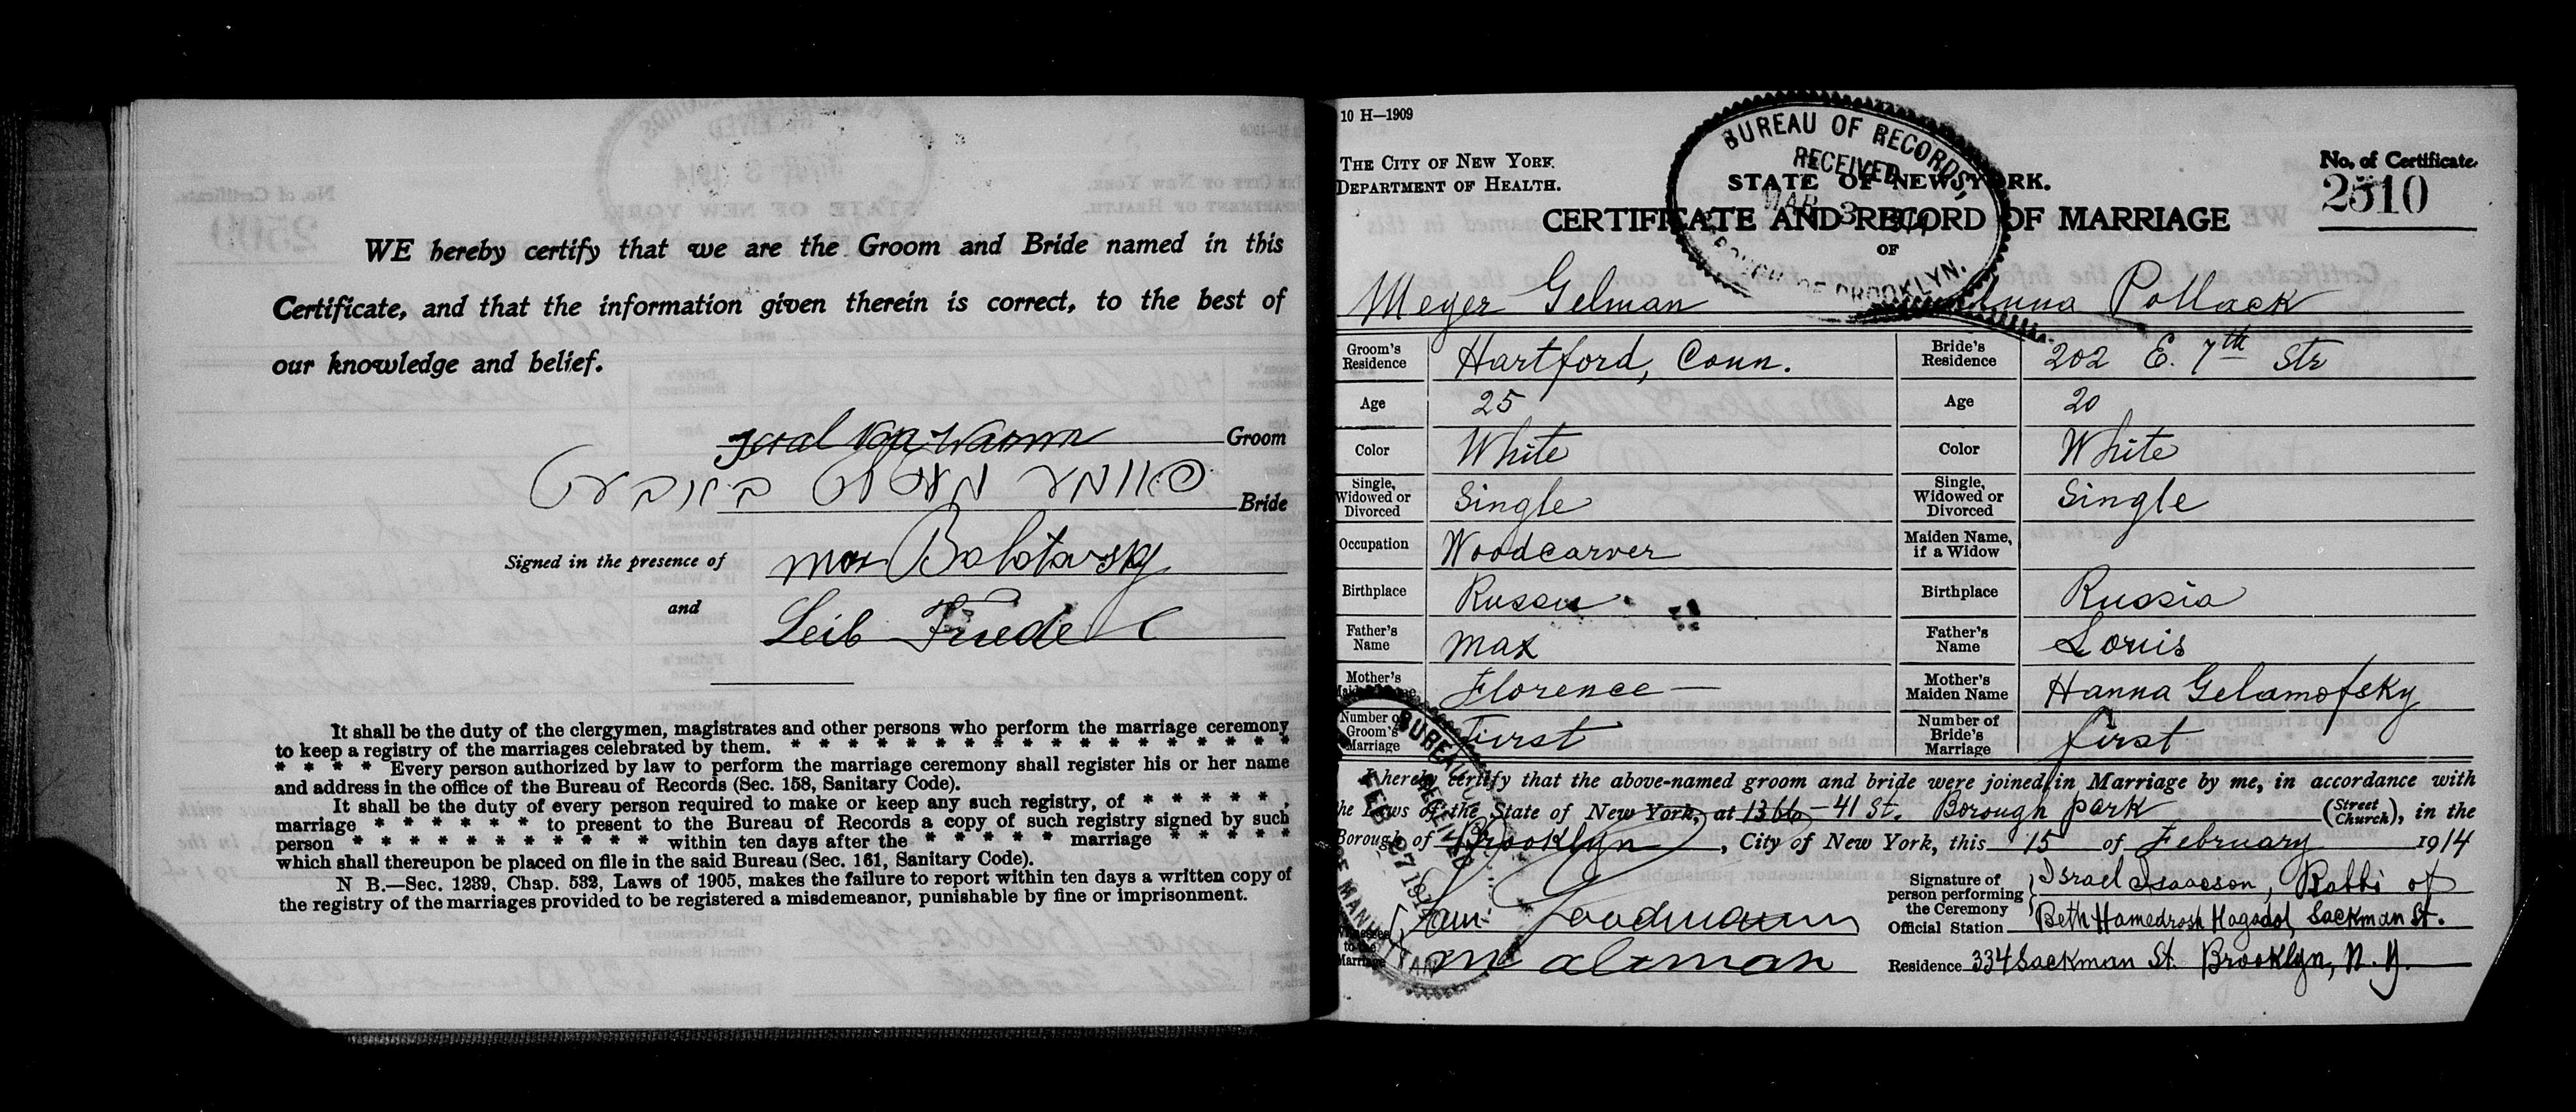 WE hereby certify that we are the Groom and Bride named in this
Certificate, and that the information given therein is correct, to the best of
our knowledge and belief.
Groom
Bride
Signed in the presence of Max Bolotavsky
and
Leib Friedel
It shall be the duty of the clergymen, magistrates and other persons who perform the marriage ceremony
to keep a registry of the marriages celebrated by them. * * * * * * * * * * * * * * * * * *
* * * * Every person authorized by law to perform the marriage ceremony shall register his or her name
and address in the office of the Bureau of Records (Sec. 158, Sanitary Code).
It shall be the duty of every person required to make or keep any such registry, of * * * * * ,
marriage * * * * * * to present to the Bureau of Records a copy of such registry signed by such
person * * * * * * * * * * * within ten days after the * * * * * marriage * * * * *
which shall thereupon be placed on file in the said Bureau (Sec. 161, Sanitary Code).
N B.—Sec. 1239, Chap. 532, Laws of 1905, makes the failure to report within ten days a written copy of
the registry of the marriages provided to be registered a misdemeanor, punishable by fine or imprisonment.
10 H—1909
THE CITY OF NEW YORK.
DEPARTMENT OF HEALTH.
BUREAU OF RECORDS,
RECEIVED
MAR 3 1914
BOROUGH OF BROOKLYN.
STATE OF NEW YORK.
No. of Certificate.
2510
CERTIFICATE AND RECORD OF MARRIAGE
OF
Meyer Gelman and Anna Pollack
Groom's Residence Hartford, Conn. Bride's Residence 202 E. 7th Str
Age 25 Age 20
Color White Color White
Single, Widowed or Divorced Single Single, Widowed or Divorced Single
Occupation Woodcarver Maiden Name, if a Widow
Birthplace Russia Birthplace Russia
Father's Name Max Father's Name Louis
Mother's Maiden Name Florence — Mother's Maiden Name Hanna Gelamofsky
Number of Groom's Marriage First Number of Bride's Marriage first
I hereby certify that the above-named groom and bride were joined in Marriage by me, in accordance with
the Laws of the State of New York, at 1366 - 41 St. Borough park (Street Church), in the
Borough of Brooklyn, City of New York, this 15 of February 1914
BUREAU RECEIVED FEB 27 1914 OF MANHATTAN
Signature of person performing the Ceremony Israel Isaacson, Rabbi of
Official Station Beth Hamedrosh Hagodol, Sackman St.
Witnesses to the Marriage Sam Goodmann
Residence 334 Sackman St. Brooklyn, N.Y.